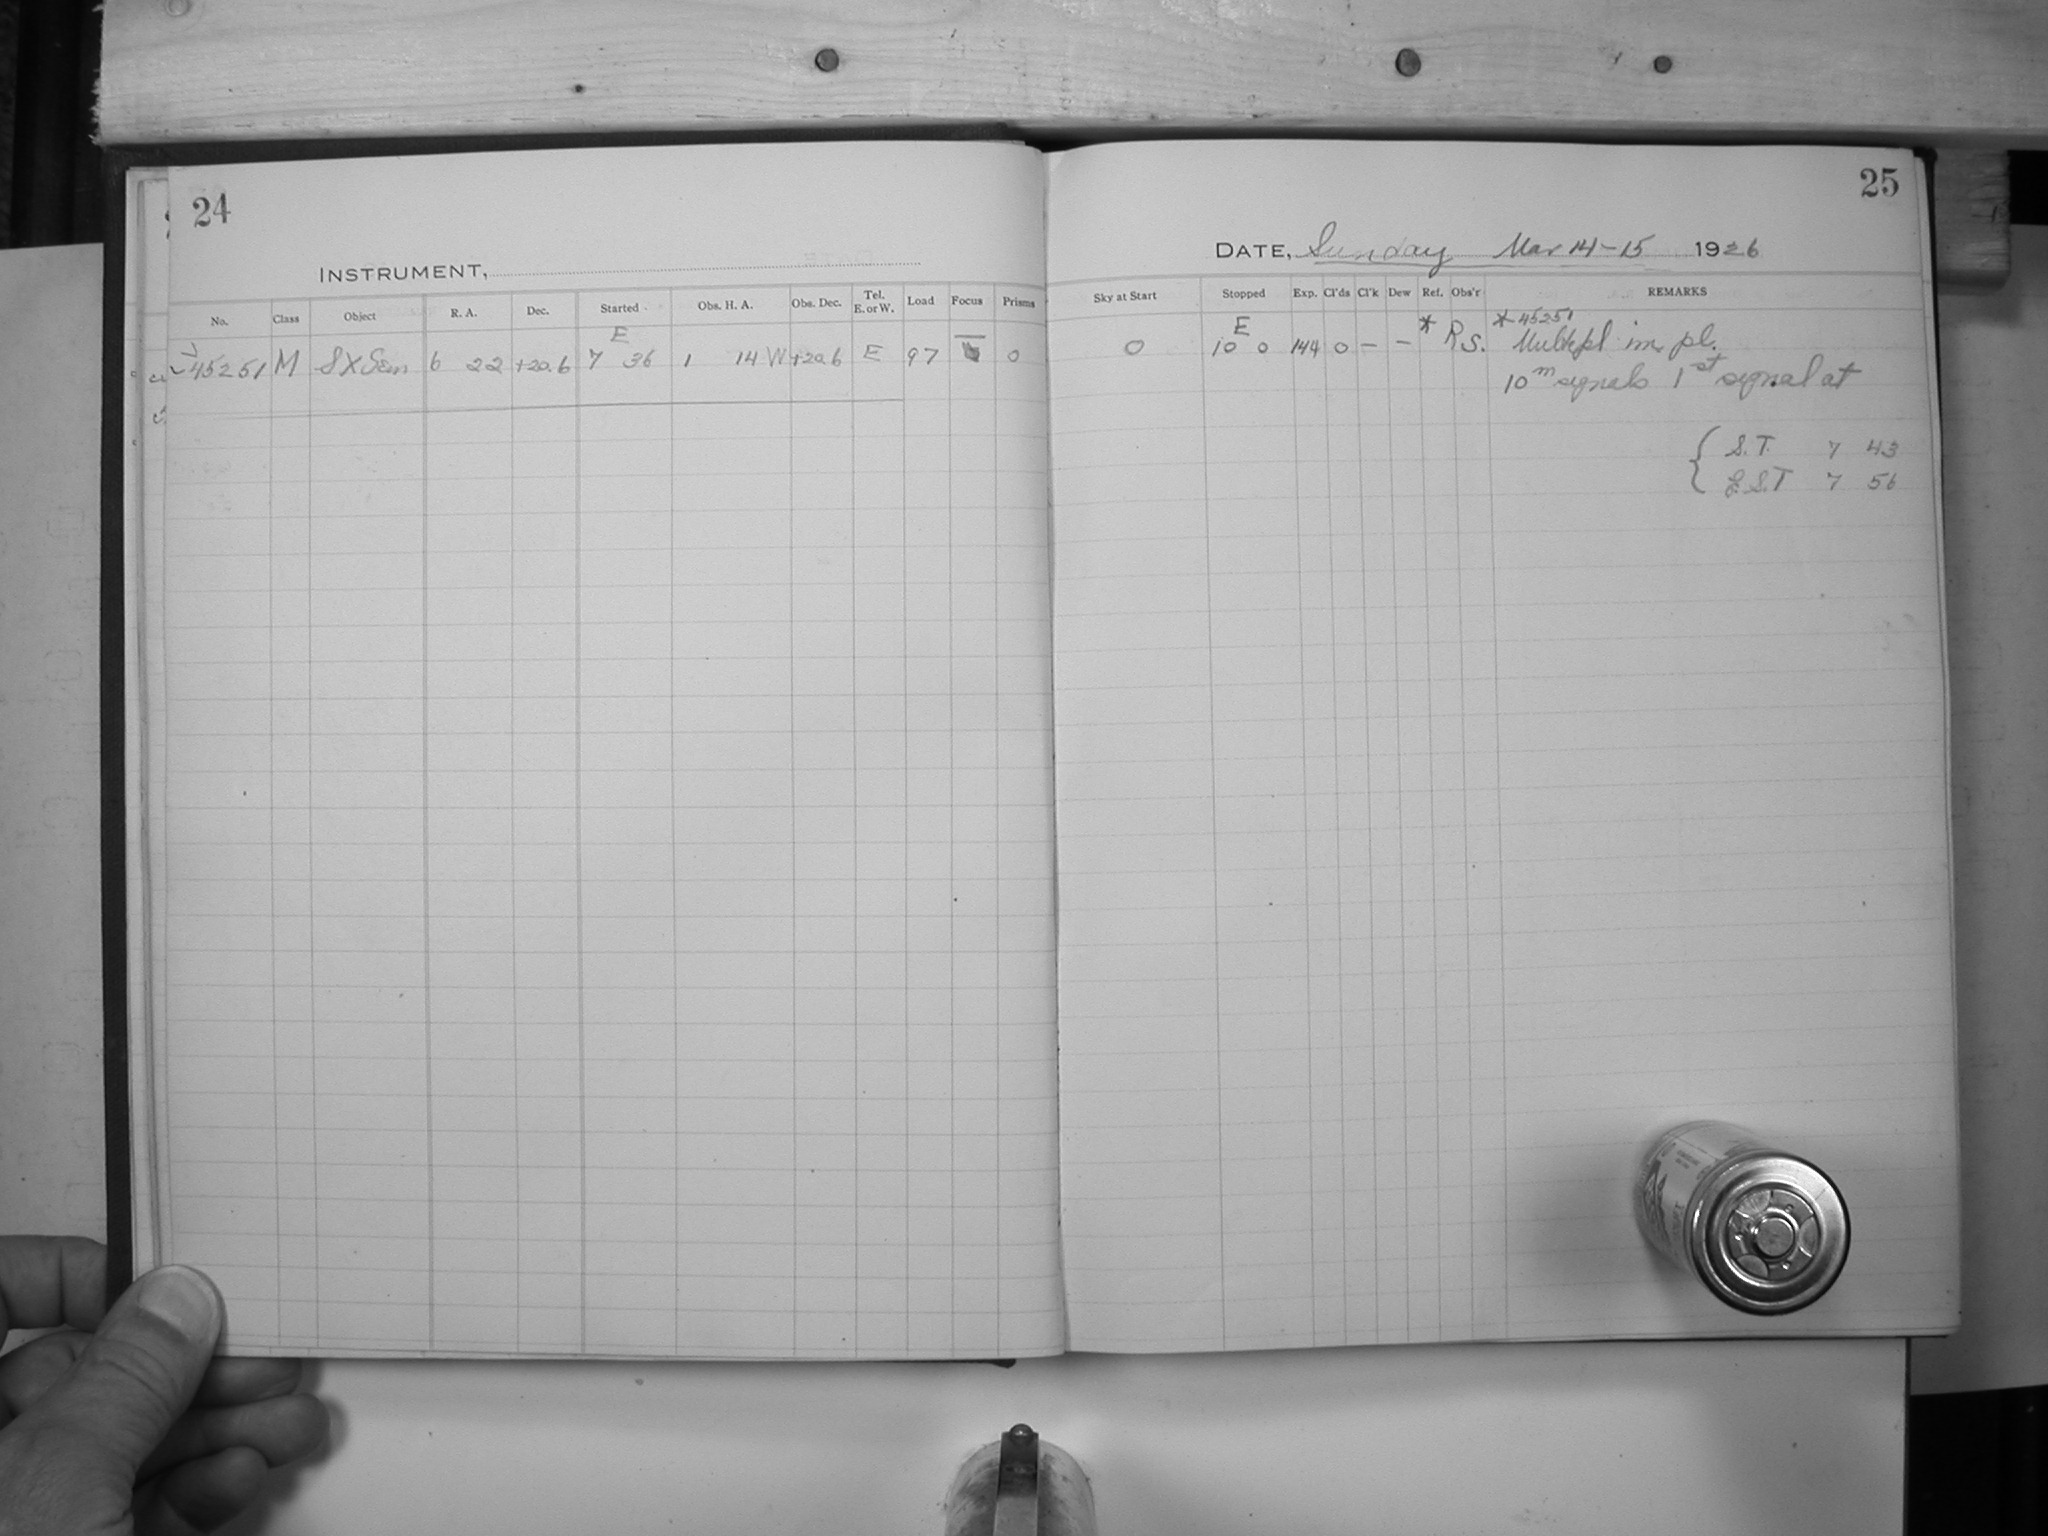 24
INSTRUMENT,
No. Class Object R. A. Dec. Started Obs. H. A. Obs. Dec. Tel. E. or W. Load Focus Prisms
E
45251 M SX Gem 6 22 +20.6 7 36 1 14 W +20.6 E 97 0
25
DATE, Sunday Mar 14-15 1926
Sky at Start Stopped Exp. Cl'ds Cl'k Dew Ref. Obs'r REMARKS
E * * 45251
0 10 0 144 0 - - R.S. Multipl im. pl.
10 m signals 1st signal at
S.T. 7 43
E.S.T 7 56